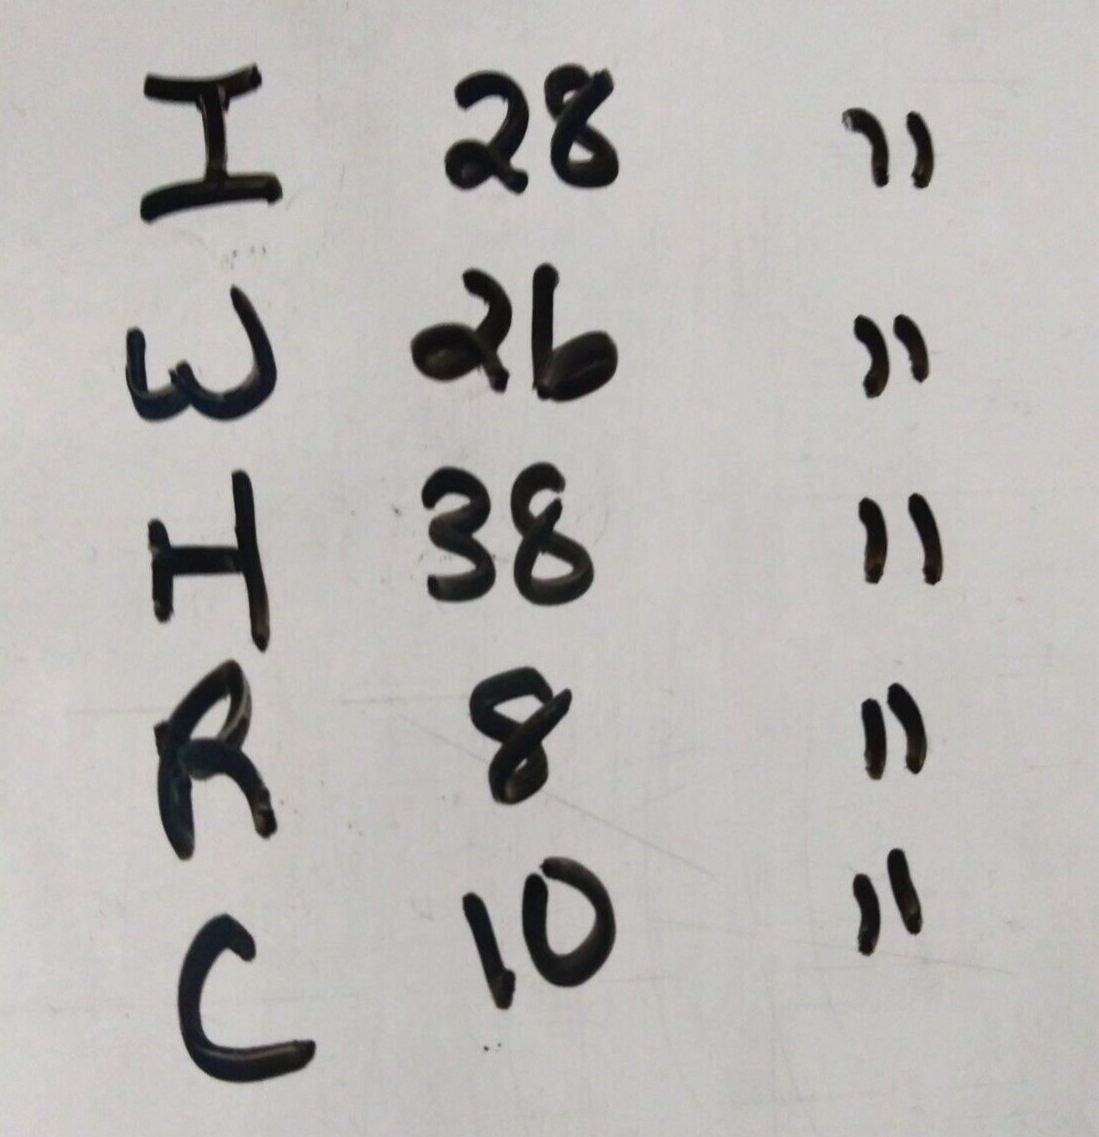 I 28 "
W 26 "
H 38 "
R 8 "
C 10 "